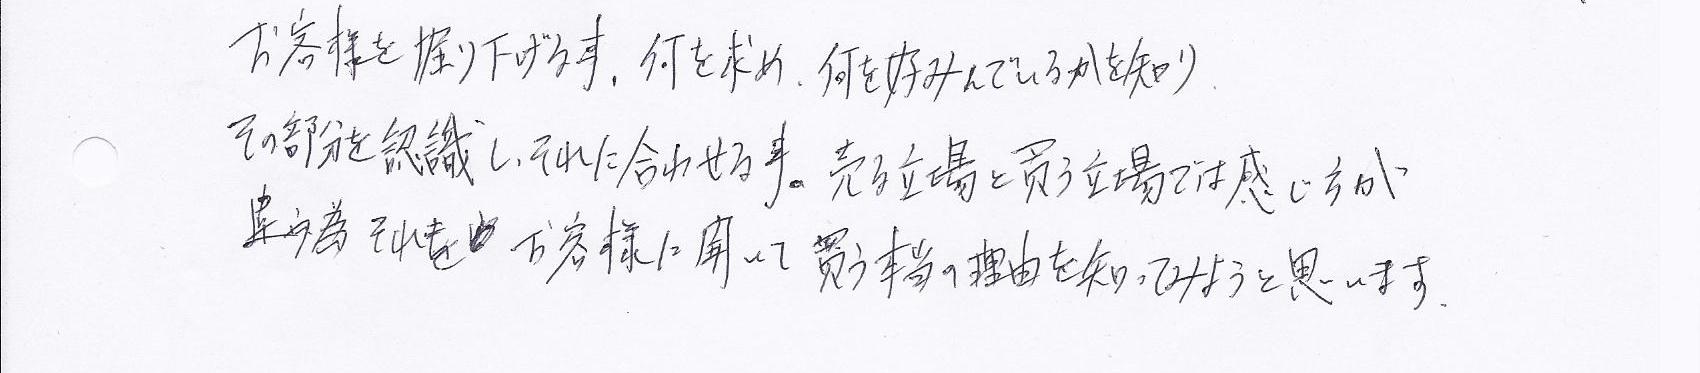 お客様を掘り下げる事、何を求め、何を好みんでいるかを知り、
その部分を認識し、それに合わせる事。売る立場と買う立場では感じ方が
違う為それを お客様に聞いて買う本当の理由を知ってみようと思います。